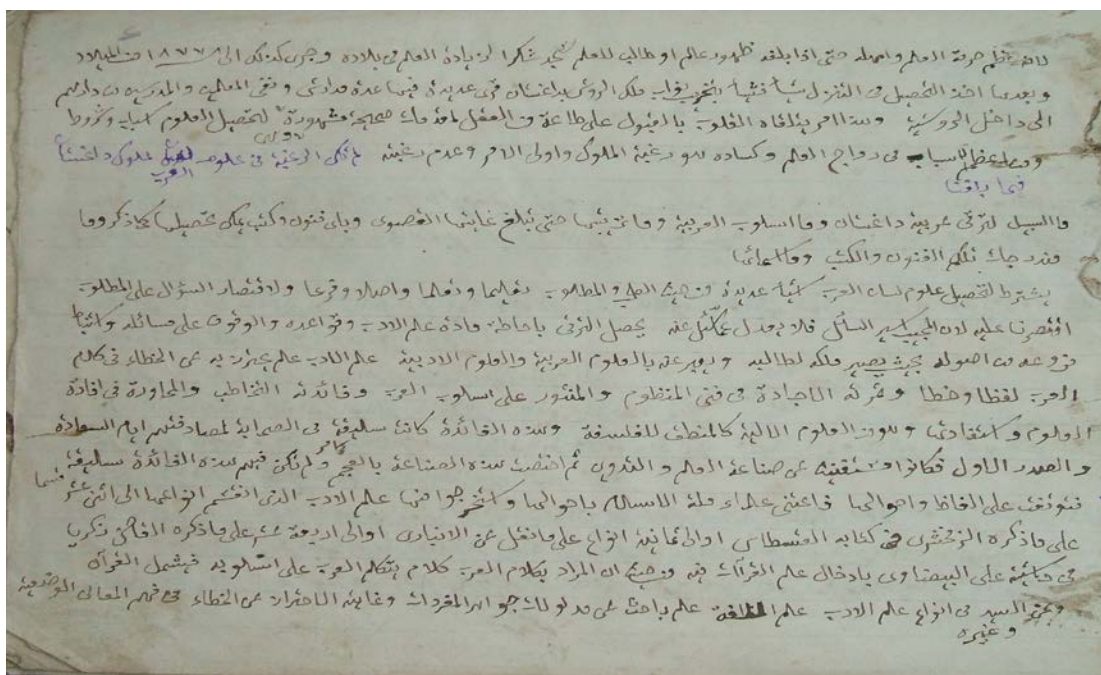 حرفة العلم واهله حتى اذا بلغه ظهور عالم او طالب للعلم شكرا لزيادة العلم فى بلاده وجرى كذلك الى ١٨٧٧ من الميلاد
وبعدها اخذ التحصيل فى التنزل شيأ فشيأ بتخريب ملك الروس بداغستان قرى عديدة فيها عدة مدارس ونفى المعلمين والمدرسين من ديارهم
الى داخل الروسية وهذا امر يتلقاه القلوب بالقبول على طاعة من العقل لمقدمات صحيحة مشهودة لتحصيل العلوم اسباب وشروط
ومن اعظم الاسباب فى رواج العلم وكساده هو رغبة الملوك واولى الامر وعدم رغبتهم الرغبة فى علوم العرب ملوك داغستان
فيها
ما السبيل لترقى عربية داغستان وما اسلوب العربية وما حتى تبلغ غايتها القصوى وباى فنون وكتب يمكن تحصيلها كما ذكر وما
مندرجات تلكم الفنون والكتب وما
يشترط لتحصيل علوم لسان العرب اشيأ عديدة من حيث الطلب والمطلوب تعليما وتعلما واصلا وفرعا ولاقتصار السؤال على المطلوب
اقتصرنا عليه لان المجيب السائل فلا يعدل عنه يحصل الترقى باحاطة مادة علم الادب وقواعده والوقوف على مسائله واثبات
فروعه من اصوله بحيث يصير ملكة لطالبه ويعبر عنه بالعلوم العربية والعلوم الادبية علم الادب علم يحترز به عن الخطاء فى كلام
العرب لفظا وخطا وثمرته الاجادة فى فنى المنظوم والمنثور على اسلوب العرب وفائدته التخاطب والمحاورة فى افادة
العلوم واستفادتها وهو من العلوم الالية كالمنطق للفلسفة وهذه الفائدة كانت سليقة فى الصحابة لمصادفتهم ايام السعادة
والصدر الاول فكانوا عن صناعة العلم والتدوين ثم اختصت هذه الصناعة بالعجم ولم تكن فيهم هذه الفائدة سليقة
فتوقفت على الفاظ واحوالها فاعتنى علماء ملة الاسلام باحوالها واستخرجوا منها علم الادب الذى انقسم انواعها الى اثنى عشر قسما
على ما ذكره الزمخشرى فى كتابه القسطاس او الى ثمانية انواع على ما نقل عن الانبارى او الى اربعة عشر على ما ذكره القاضى زكريا
فى حاشيته على البيضاوى بادخال علم القرآت فيه من حيث ان المراد بكلام العرب كلام يتكلم العرب على اسلوبه فيشمل القرآن وغيره
ويجرى السير فى انواع علم الادب علم اللغة علم باحث عن مدلولات جواهر المفردات وغايته الاحتراز عن الخطاء فى فهم المعانى الوضعية